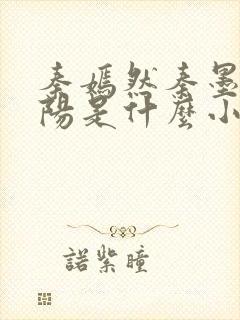 秦嫣然秦墨
陽是什麼小
諾紫瞳